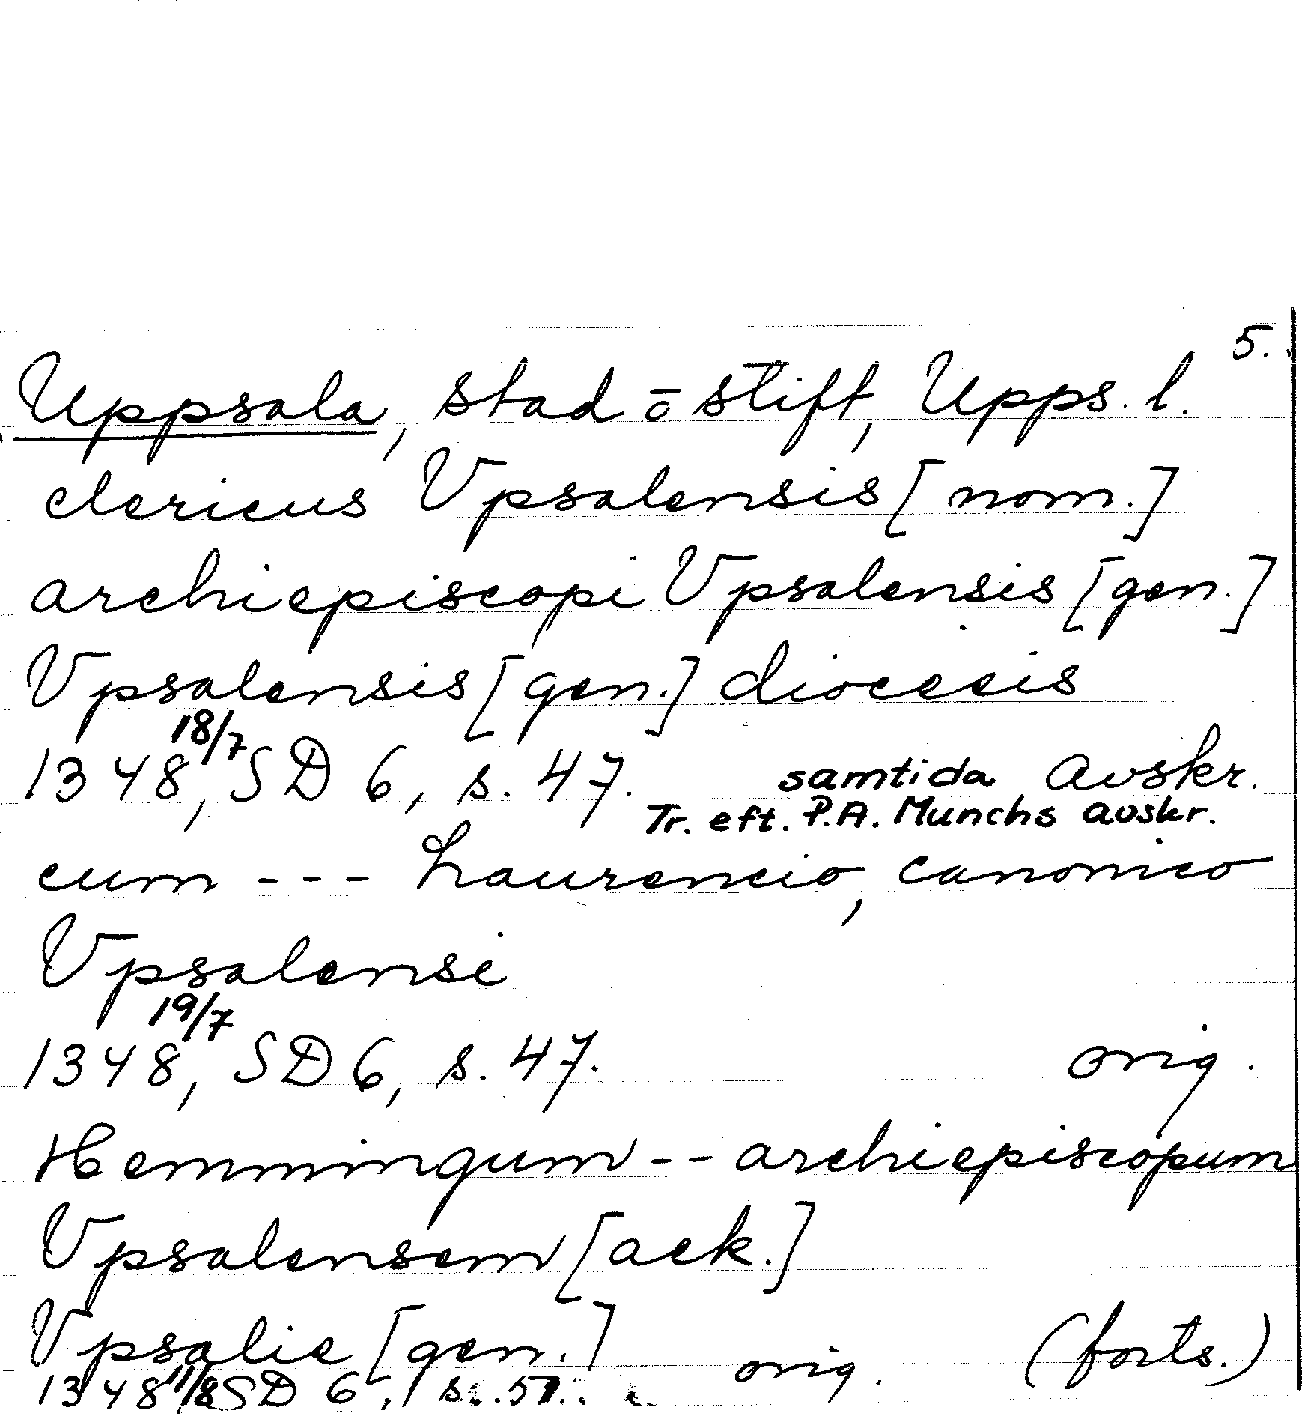 5.
Uppsala, stad o̅ stift, Upps. l.
clericus Vpsalensis [nom.]
archiepiscopi Vpsalensis [gen.]
Vpsalensis [gen.] diocesis
18/7
1348, SD 6, s. 47. samtida Avskr.
Tr. eft. P.A. Munchs avskr.
cum --- Laurencio, canonico
Vpsalensi
19/7
1348, SD 6, s. 47. orig.
Hemmingum -- archiepiscopum
Vpsalensem [ack.]
Vpsalie [gen.] orig. (forts.)
1348 11/8 SD 6, s. 51.